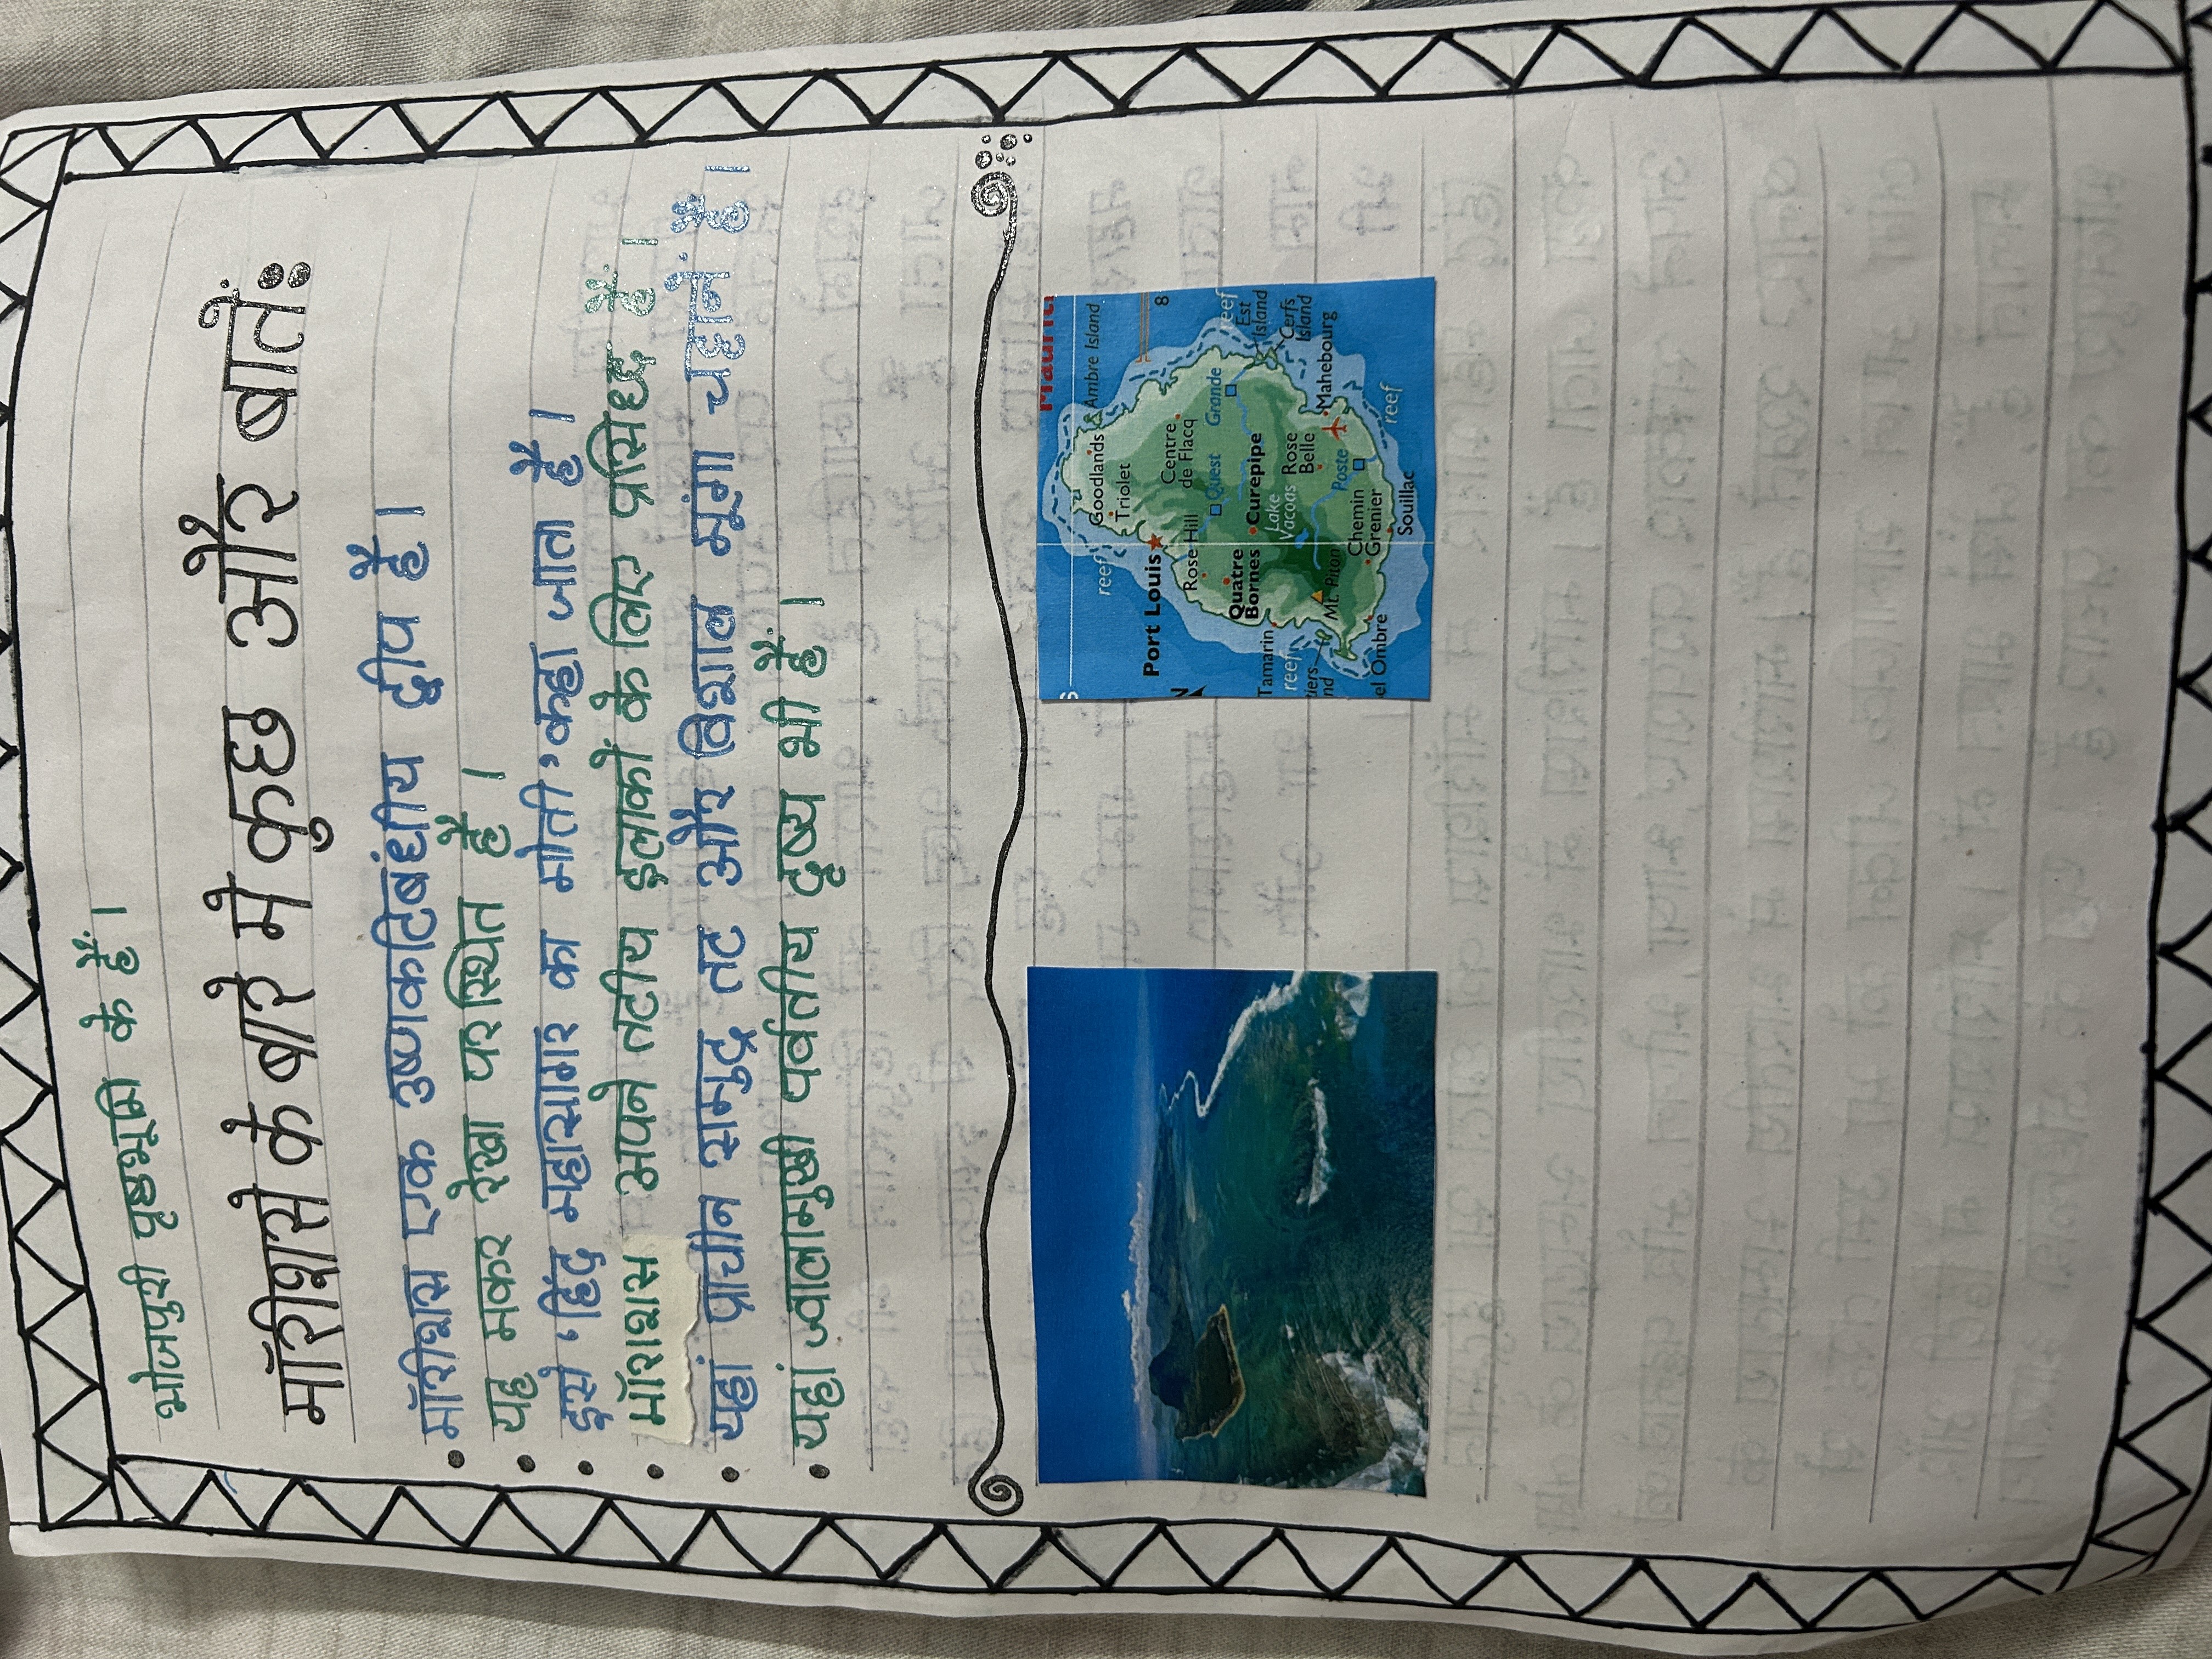 भोजपुरी पृष्ठभूमि के हैं।
मॉरीशसे के बारे मे कुछ और बातें:
• मॉरीशस एक उष्णकटिबंधीय द्वीप है।
• यह मकर रेखा पर स्थित है।
• इसे 'हिंद महासागर का मोती' कहा जाता है।
• मॉराशस अपने तटीय इलाकों के लिए प्रसिध्द हैं।
• यहां प्राचीन समुद्र तट और विशाल मूंगा चट्टानें हैं।
• यहां ज्वालामुखी पर्वतीय दृष्य भी हैं।
Mauriti
S
reef
Goodlands
Ambre Island
Triolet
Port Louis
8
Centre
de Flacq
N
Rose Hill
Quest
Grande
reef
Quatre
Bornes
Curepipe
Est
Island
Tamarin
Lake
Vacoas
reef
Rose
Belle
Cerfs
Island
tiers
nd
Mt. Piton
Poste
Mahebourg
Chemin
Grenier
el Ombre
reef
Souillac